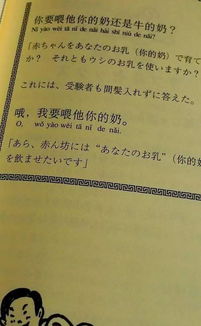 你要喂他你的奶还是牛的奶？
Nǐ yào wèi tā nǐ de nǎi hái shì niú de nǎi?
「赤ちゃんをあなたのお乳（你的奶）で育て
か？　それともウシのお乳を使いますか？
これには、受験者も間髪入れずに答えた。
哦，我要喂他你的奶。
O, wǒ yào wèi tā nǐ de nǎi.
「あら、赤ん坊には“あなたのお乳”（你的
を飲ませたいです」